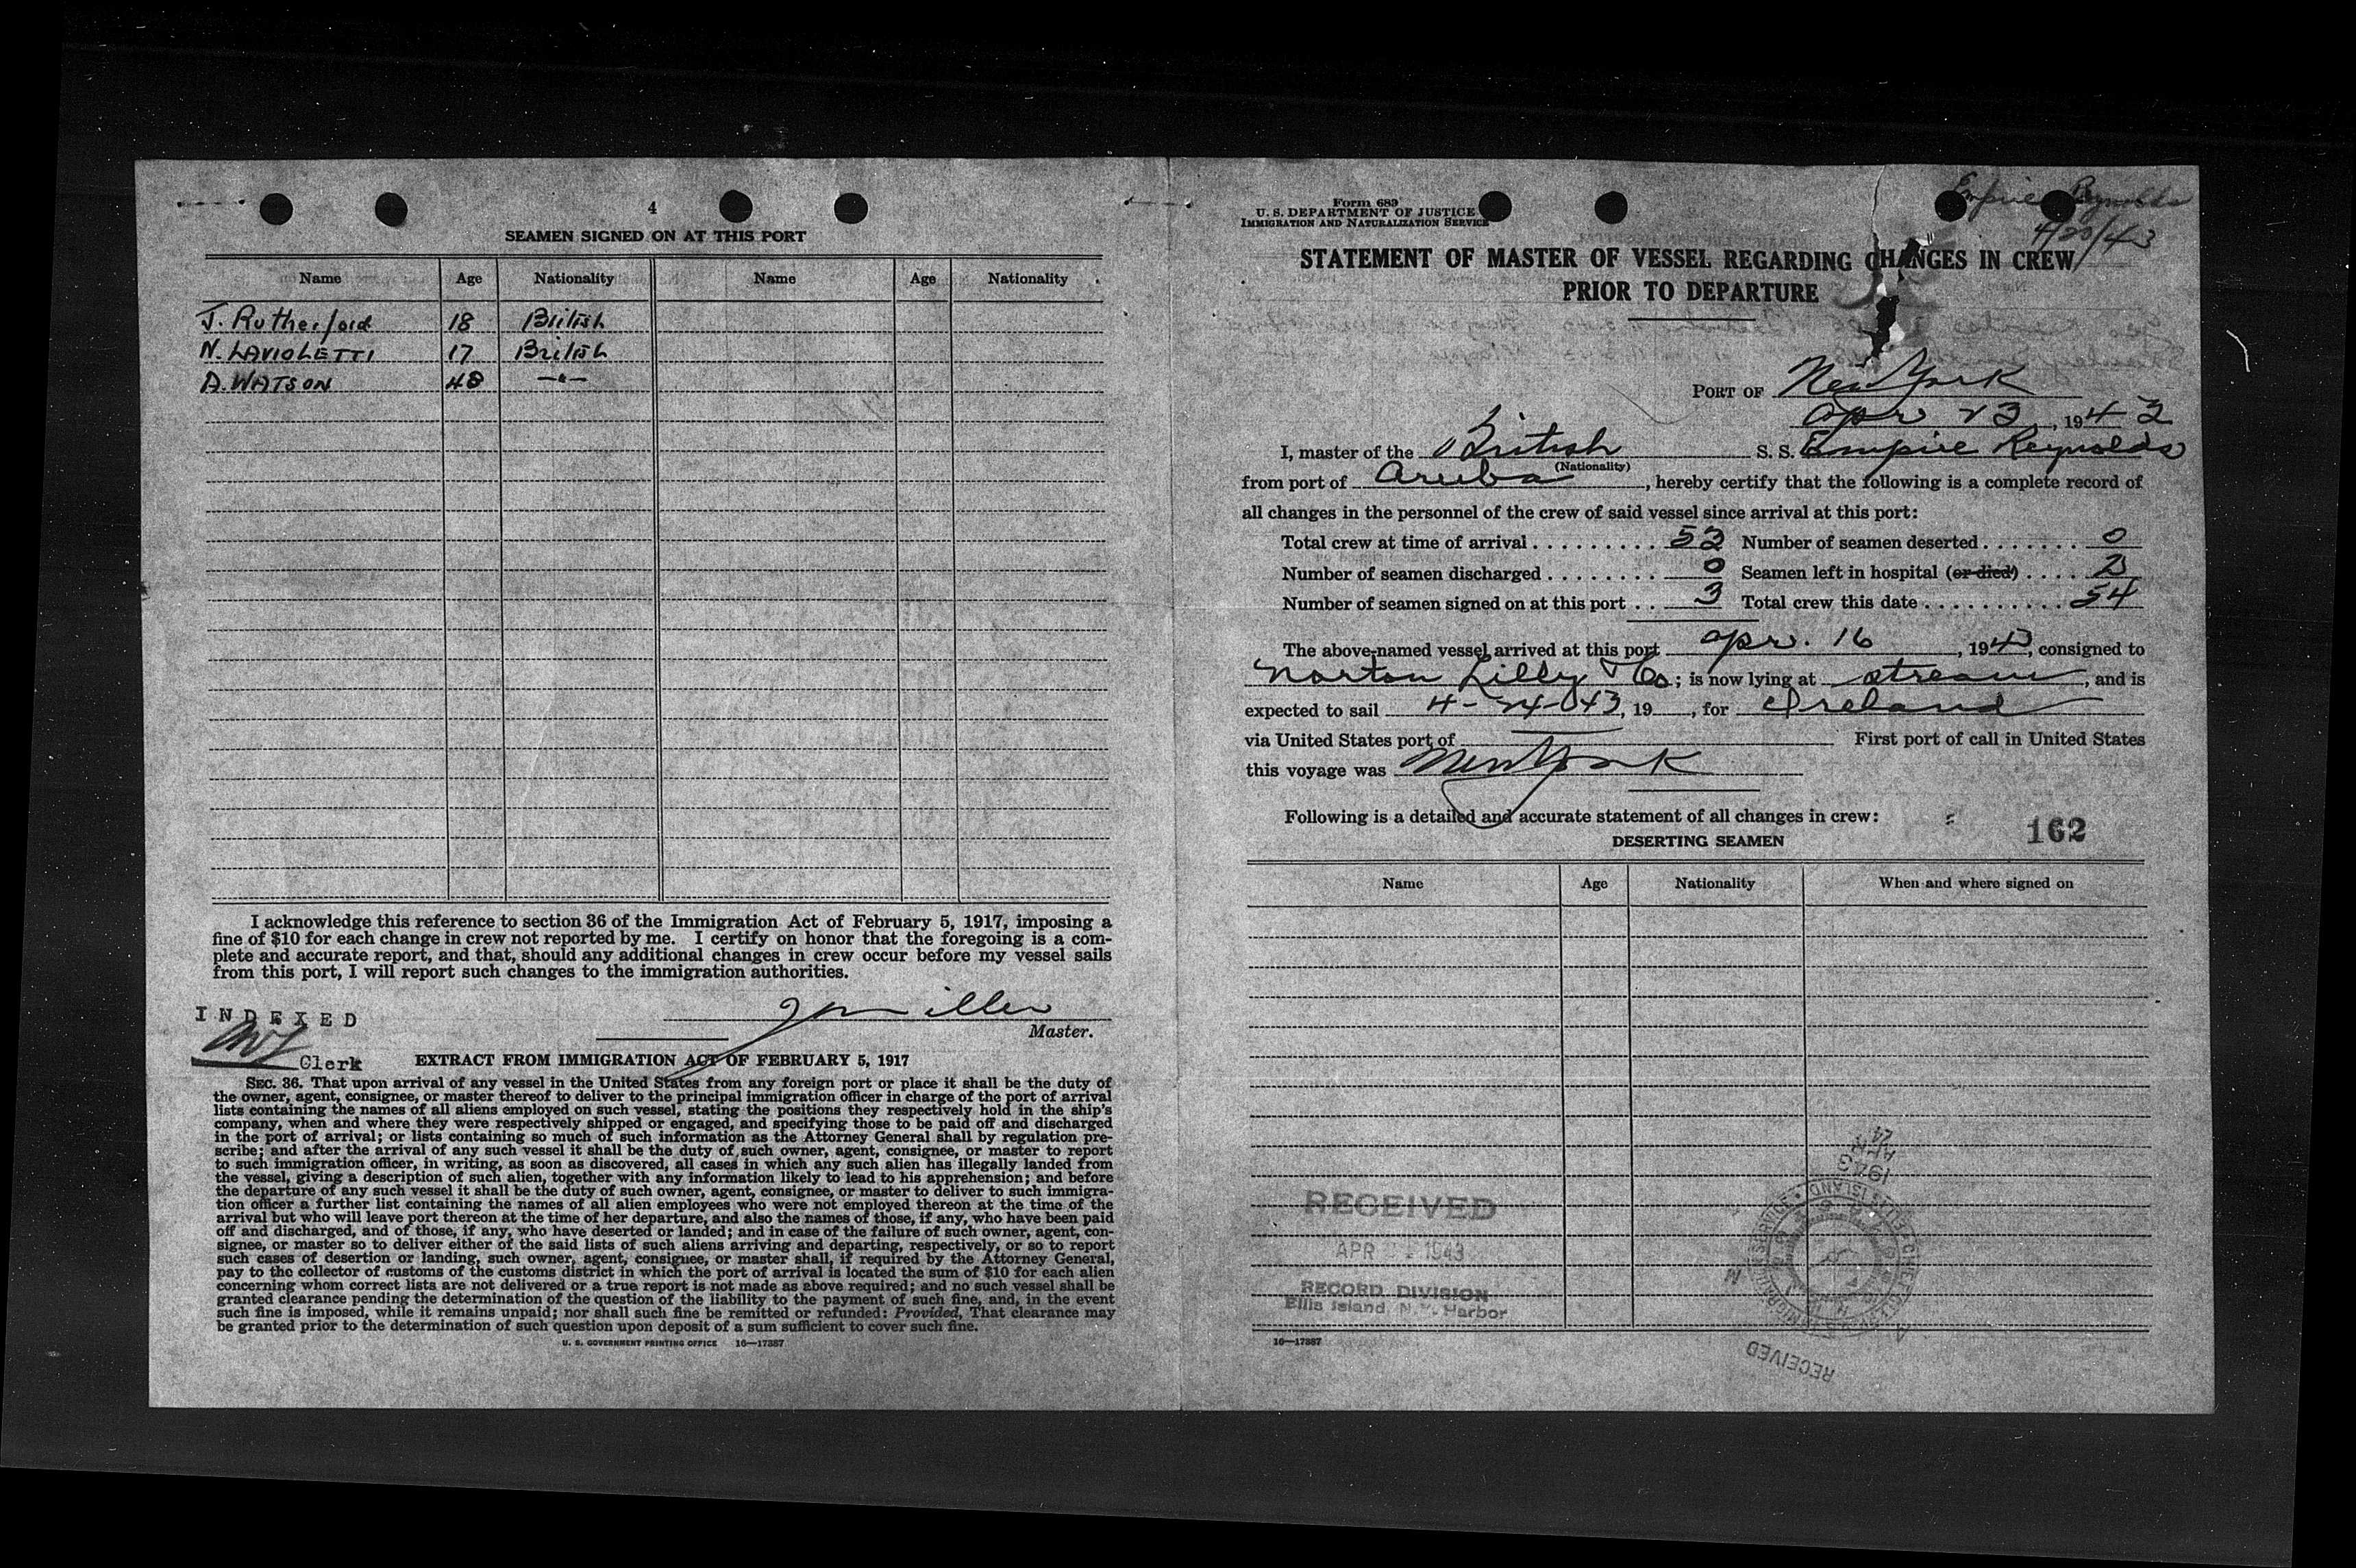 4
SEAMEN SIGNED ON AT THIS PORT
Name Age Nationality Name Age Nationality
J. Rutherford 18 British
N. LAVIOLETTI 17 British
A. WATSON 48 —"—
I acknowledge this reference to section 36 of the Immigration Act of February 5, 1917, imposing a
fine of $10 for each change in crew not reported by me. I certify on honor that the foregoing is a com-
plete and accurate report, and that, should any additional changes in crew occur before my vessel sails
from this port, I will report such changes to the immigration authorities.
INDEXED
Master.
Clerk
EXTRACT FROM IMMIGRATION ACT OF FEBRUARY 5, 1917
SEC. 36. That upon arrival of any vessel in the United States from any foreign port or place it shall be the duty of
the owner, agent, consignee, or master thereof to deliver to the principal immigration officer in charge of the port of arrival
lists containing the names of all aliens employed on such vessel, stating the positions they respectively hold in the ship's
company, when and where they were respectively shipped or engaged, and specifying those to be paid off and discharged
in the port of arrival; or lists containing so much of such information as the Attorney General shall by regulation pre-
scribe; and after the arrival of any such vessel it shall be the duty of such owner, agent, consignee, or master to report
to such immigration officer, in writing, as soon as discovered, all cases in which any such alien has illegally landed from
the vessel, giving a description of such alien, together with any information likely to lead to his apprehension; and before
the departure of any such vessel it shall be the duty of such owner, agent, consignee, or master to deliver to such immigra-
tion officer a further list containing the names of all alien employees who were not employed thereon at the time of the
arrival but who will leave port thereon at the time of her departure, and also the names of those, if any, who have been paid
off and discharged, and of those, if any, who have deserted or landed; and in case of the failure of such owner, agent, con-
signee, or master so to deliver either of the said lists of such aliens arriving and departing, respectively, or so to report
such cases of desertion or landing, such owner, agent, consignee, or master shall, if required by the Attorney General,
pay to the collector of customs of the customs district in which the port of arrival is located the sum of $10 for each alien
concerning whom correct lists are not delivered or a true report is not made as above required; and no such vessel shall be
granted clearance pending the determination of the question of the liability to the payment of such fine, and, in the event
such fine is imposed, while it remains unpaid; nor shall such fine be remitted or refunded: Provided, That clearance may
be granted prior to the determination of such question upon deposit of a sum sufficient to cover such fine.
U. S. GOVERNMENT PRINTING OFFICE 16—17387
Form 689
U. S. DEPARTMENT OF JUSTICE
IMMIGRATION AND NATURALIZATION SERVICE
Empire Reynolds
4/20/43
STATEMENT OF MASTER OF VESSEL REGARDING CHANGES IN CREW
PRIOR TO DEPARTURE
PORT OF New York
Apr 23, 1943
I, master of the British S. S. Empire Reynolds
(Nationality)
from port of Aruba, hereby certify that the following is a complete record of
all changes in the personnel of the crew of said vessel since arrival at this port:
Total crew at time of arrival . . . . . . . . . . 53 Number of seamen deserted . . . . . . . 0
Number of seamen discharged . . . . . . . . 0 Seamen left in hospital (or died) . . . . 2
Number of seamen signed on at this port . . 3 Total crew this date . . . . . . . . . . 54
The above-named vessel arrived at this port Apr. 16, 1943, consigned to
Norton Lilly & Co; is now lying at stream, and is
expected to sail 4-24-43, 19 , for Ireland
via United States port of — First port of call in United States
this voyage was New York
Following is a detailed and accurate statement of all changes in crew:
162
DESERTING SEAMEN
Name Age Nationality When and where signed on
1943
APR
24
RECEIVED
APR 1943
RECORD DIVISION
Ellis Island, N.Y. Harbor
16—17387
RECEIVED